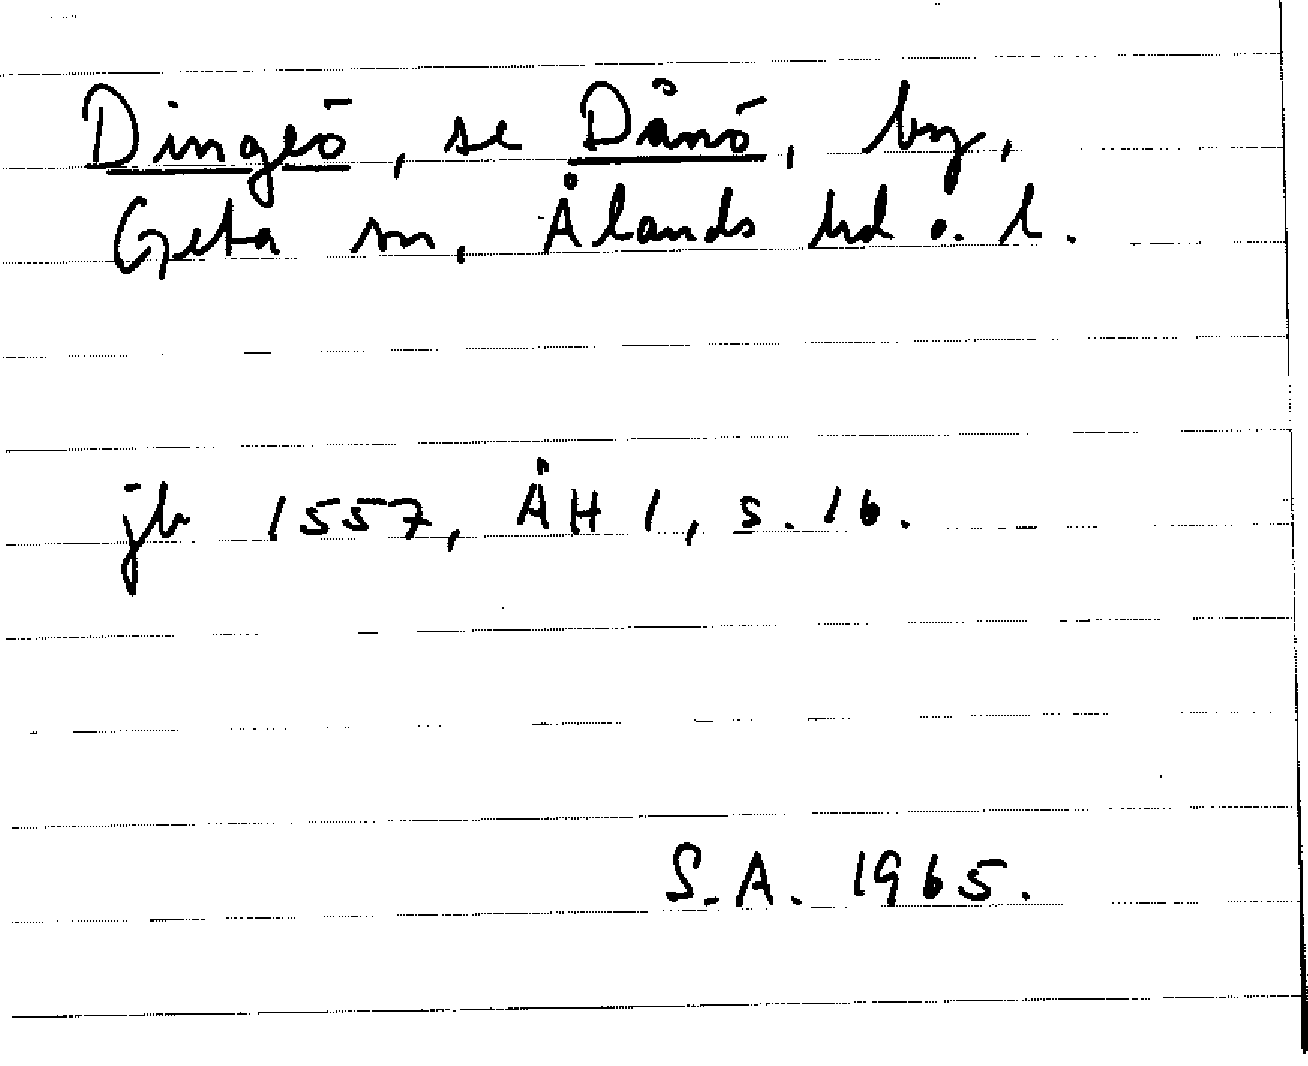 Dingeö, se Dånö, by,
Geta sn, Ålands hd o. l.
jb 1557, ÅH 1, s. 16.
S.A. 1965.